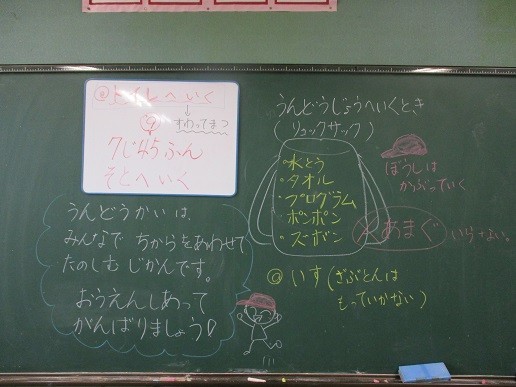 ⑧トイレへいく
↓
⑨ すわってまつ
7じ45ふん
そとへいく
うんどうかいは、
みんなで ちからをあわせて
たのしむ じかんです。
おうえんしあって
がんばりましょう!
うんどうじょうへいくとき
(リュックサック)
・水とう
・タオル
・プログラム
・ポンポン
・ズボン
ぼうしは
かぶっていく
あまぐ いらない。
◎いす(ざぶとんは
もっていかない)